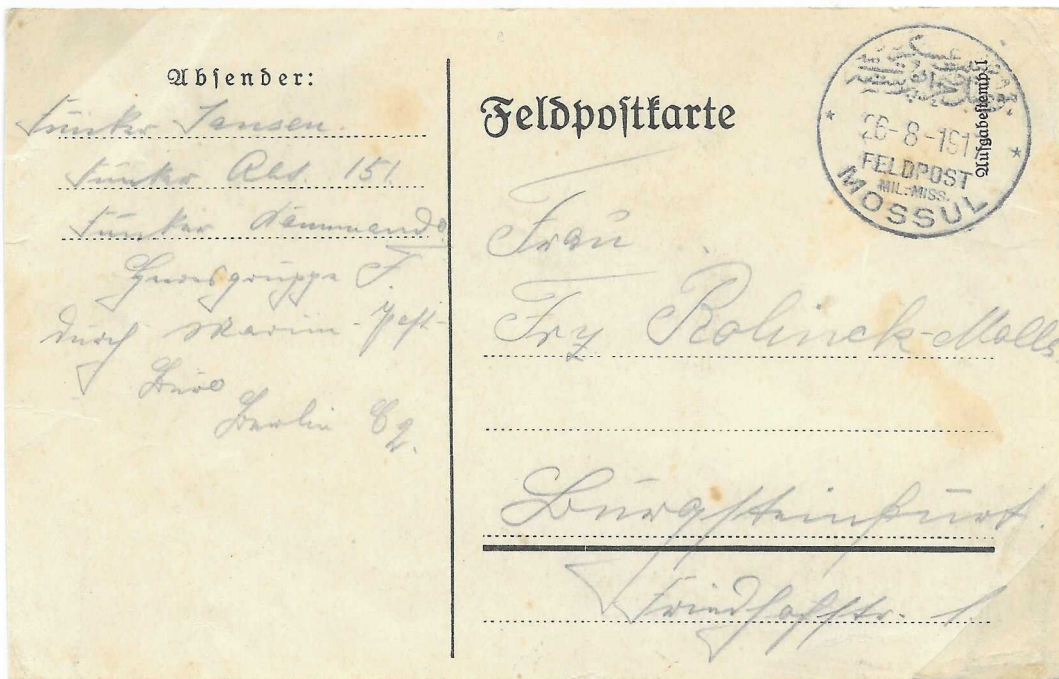 Absender:
Funker Jansen.
Funker Abt. 151
Funker Kommando
Heeresgruppe F.
durch Marine-Post-
Büro
Berlin C 2.
Feldpostkarte
Ausgabestempel
26-8-191
FELDPOST
MIL.-MISS.
MOSSUL
Frau
Rolinck-
Burgsteinfurt.
Friedhofstr. 1